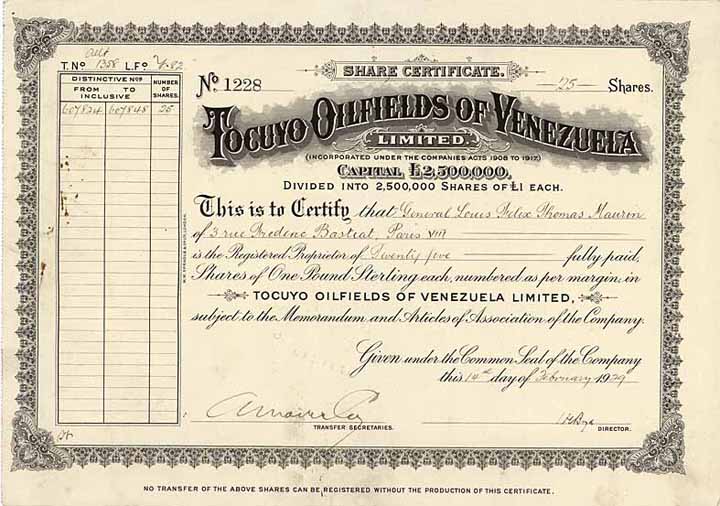 T. Nº 1358 L.Fº 4/82
DISTINCTIVE NOS
FROM TO
INCLUSIVE
NUMBER
OF
SHARES.
607824 607848 25
SHARE CERTIFICATE.
Nº 1228
25 Shares.
TOCUYO OILFIELDS OF VENEZUELA
LIMITED.
(INCORPORATED UNDER THE COMPANIES ACTS 1908 TO 1917)
CAPITAL £2,500,000,
DIVIDED INTO 2,500,000 SHARES OF £1 EACH.
This is to Certify that General Louis Felix Thomas Maurin
of 3 rue Frederic Bastiat, Paris VIII
is the Registered Proprietor of Twenty five fully paid
Shares of One Pound Sterling each, numbered as per margin, in
TOCUYO OILFIELDS OF VENEZUELA LIMITED,
subject to the Memorandum and Articles of Association of the Company.
Given under the Common Seal of the Company
this 14th day of February 1929
TRANSFER SECRETARIES.
DIRECTOR.
NO TRANSFER OF THE ABOVE SHARES CAN BE REGISTERED WITHOUT THE PRODUCTION OF THIS CERTIFICATE.